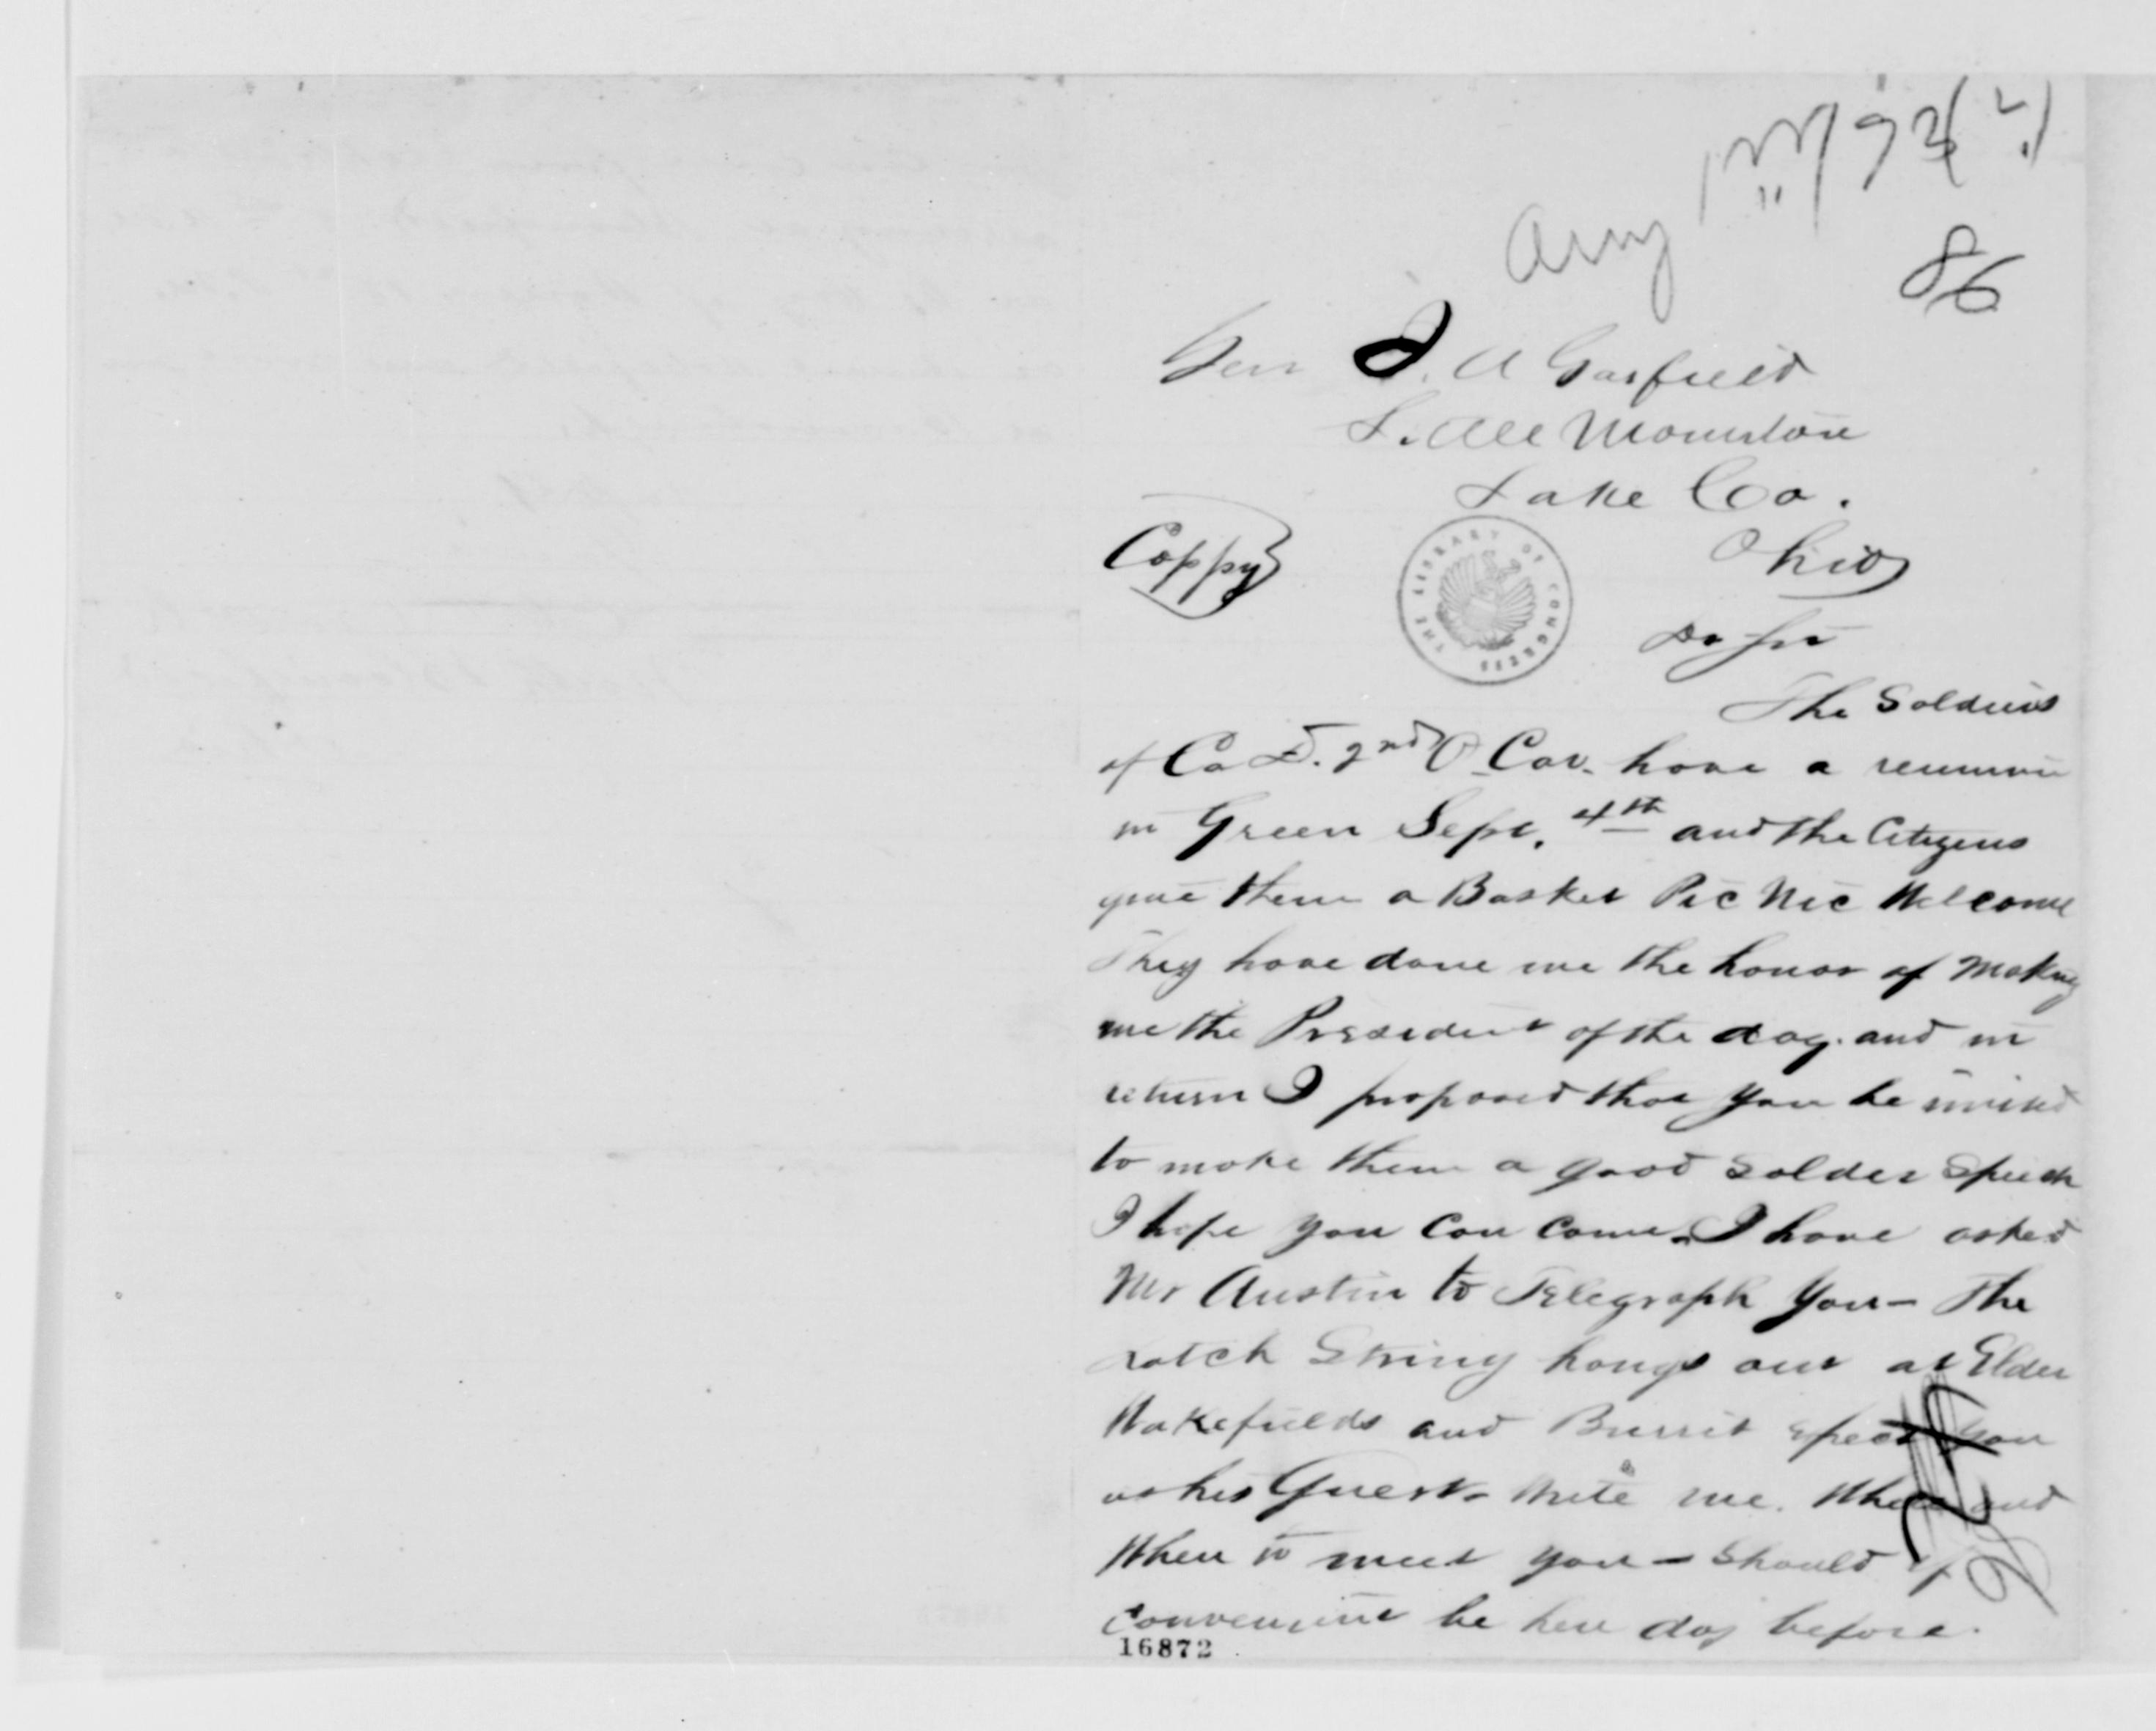 Aug
86
Gen J. A Garfield
Little Mountain
Lake Co.
Ohio
Coppy
THE LIBRARY OF CONGRESS
Dr Sir
The Soldiers
of Co D. 2nd O. Cav. have a reunion
in Green Sept. 4th and the Citizens
give them a Basket Pic Nic Welcome
They have done me the honor of Making
me the President of the day. and in
return I proposed that you be invited
to make them a good Solder Speech
I hope you can come. I have asked
Mr Austin to Telegraph you - The
Latch String hangs out at Elder
Wakefields and Burrit Expects you
as his Guest - Write me. Where and
When to meet you - Should if
Convenient be here day before.
16872